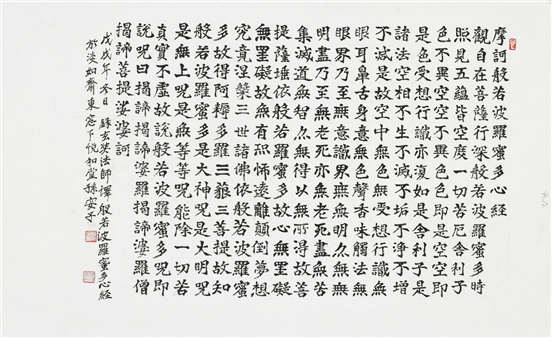 摩訶般若波羅蜜多心經
觀自在菩薩行深般若波羅蜜多時
照見五蘊皆空度一切苦厄舍利子
色不異空空不異色色即是空空即
是色受想行識亦復如是舍利子是
諸法空相不生不滅不垢不淨不增
不減是故空中無色無受想行識無
眼耳鼻舌身意無色聲香味觸法無
眼界乃至無意識界無無明亦無無
明盡乃至無老死亦無老死盡無苦
集滅道無智亦無得以無所得故菩
提薩埵依般若波羅蜜多故心無罣礙
無罣礙故無有恐怖遠離顛倒夢想
究竟涅槃三世諸佛依般若波羅蜜
多故得阿耨多羅三藐三菩提故知
般若波羅蜜多是大神呪是大明呪
是無上呪是無等等呪能除一切苦
真實不虛故說般若波羅蜜多呪即
說呪曰揭諦揭諦婆羅揭諦婆羅僧
揭諦菩提娑婆訶
戊戌年冬日 錄玄奘法師譯般若波羅蜜多心經
於淡如齋東窗下悅和堂孫安子